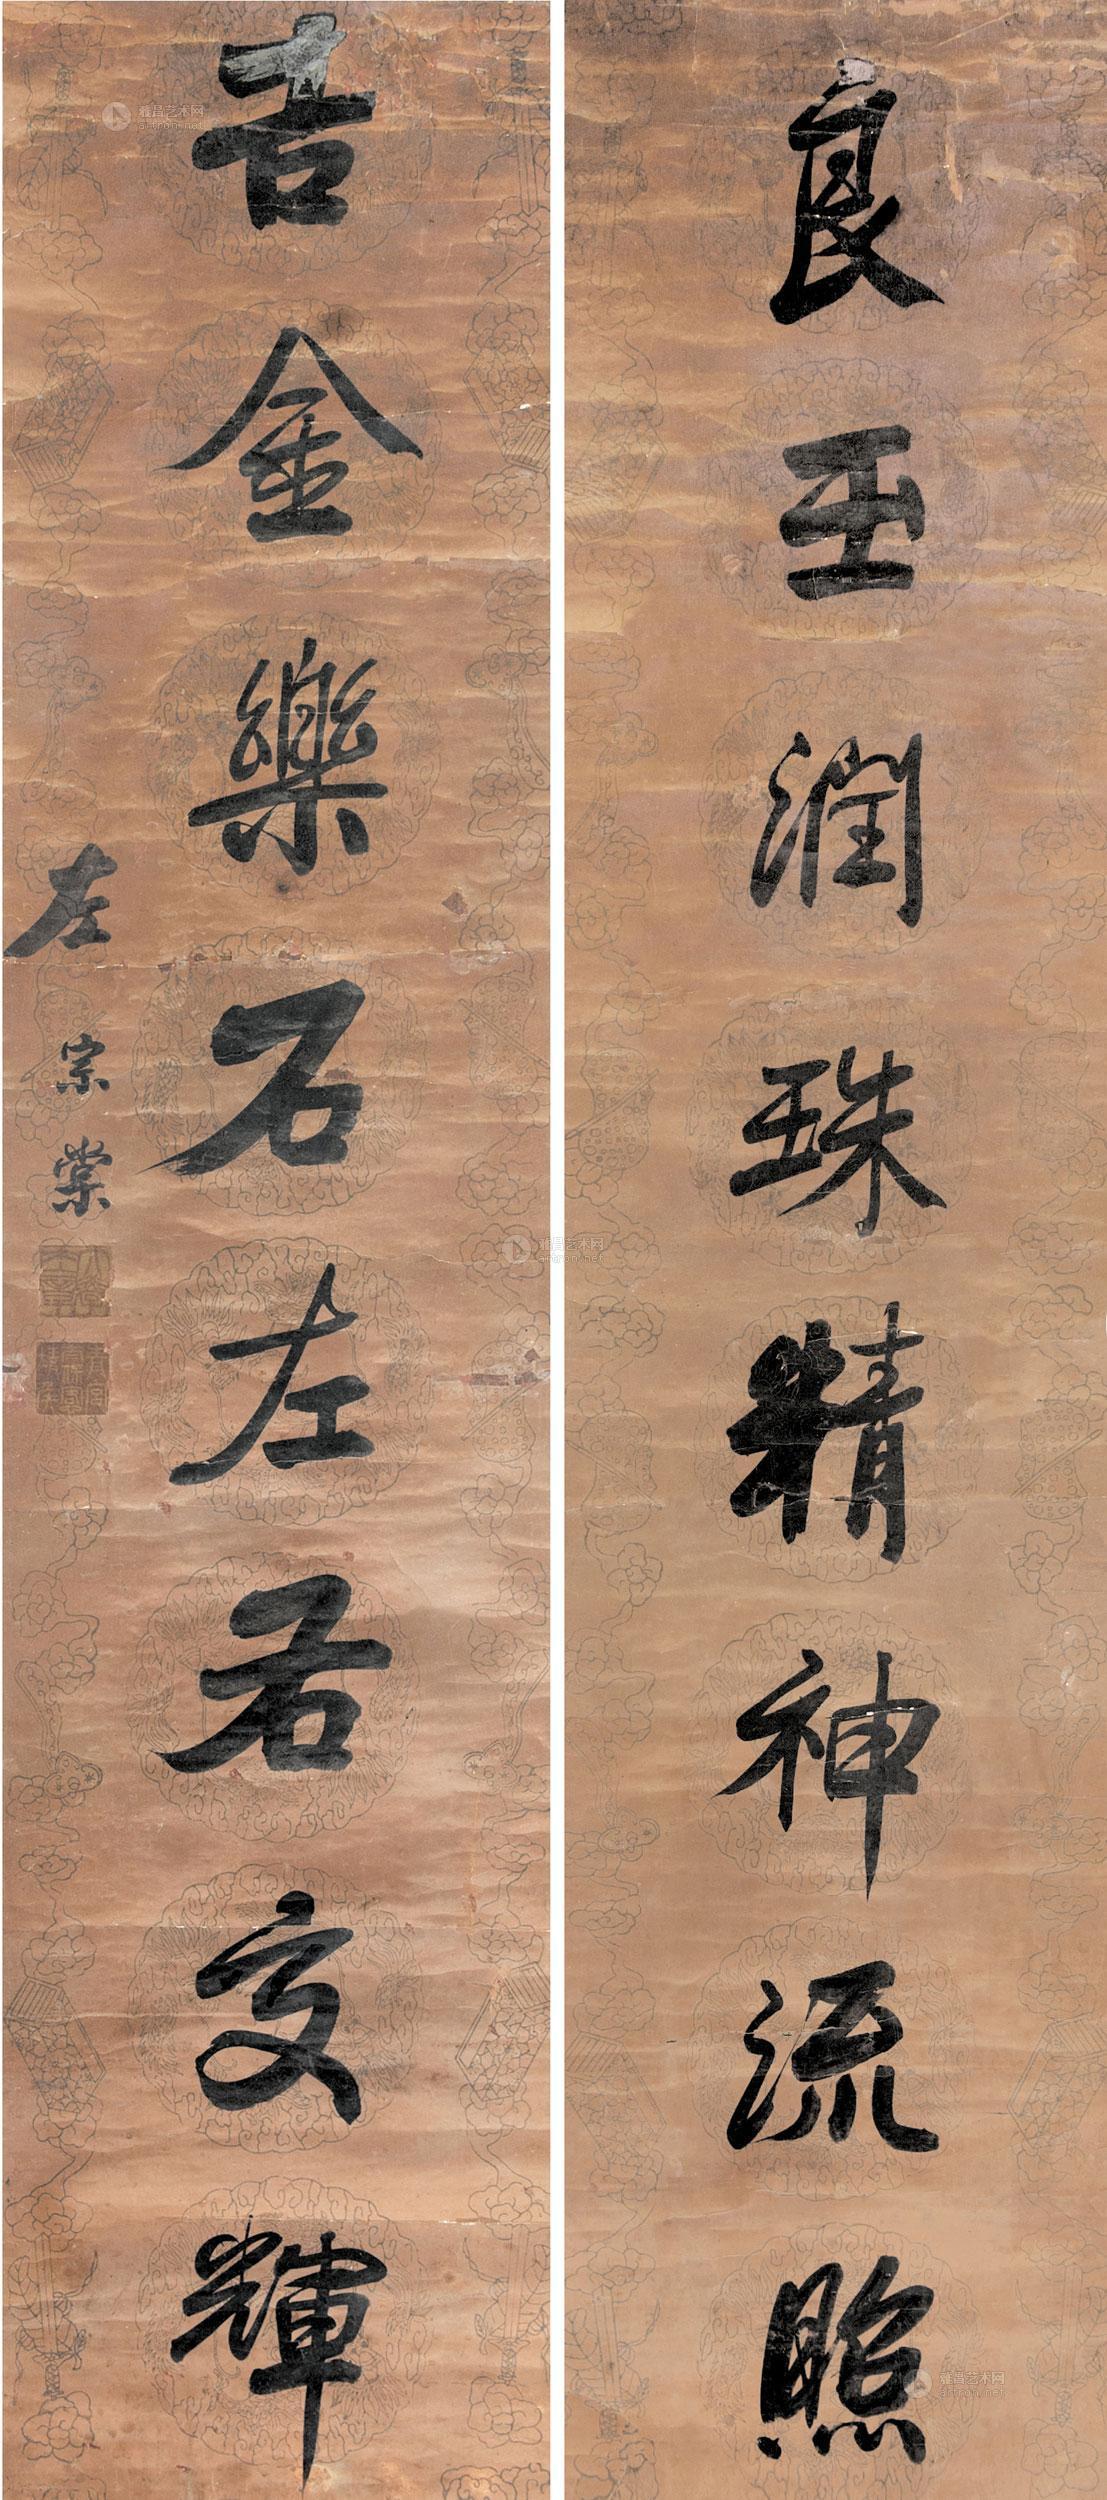 良玉潤珠精神流照
吉金樂石左右交輝
左宗棠
雅昌艺术网
artron.net
雅昌艺术网
artron.net
雅昌艺术网
artron.net